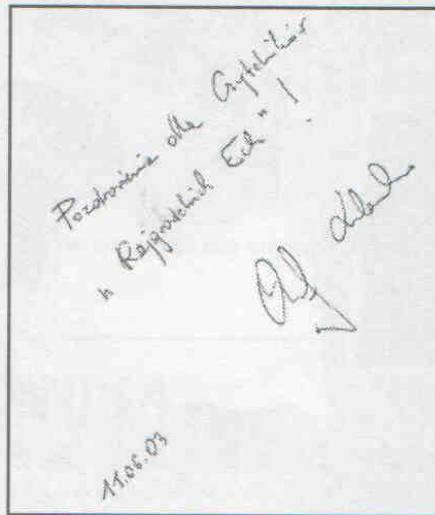 Pozdrowienia dla Czytelników
„Rajgrodzkich Ech"!
11.06.03